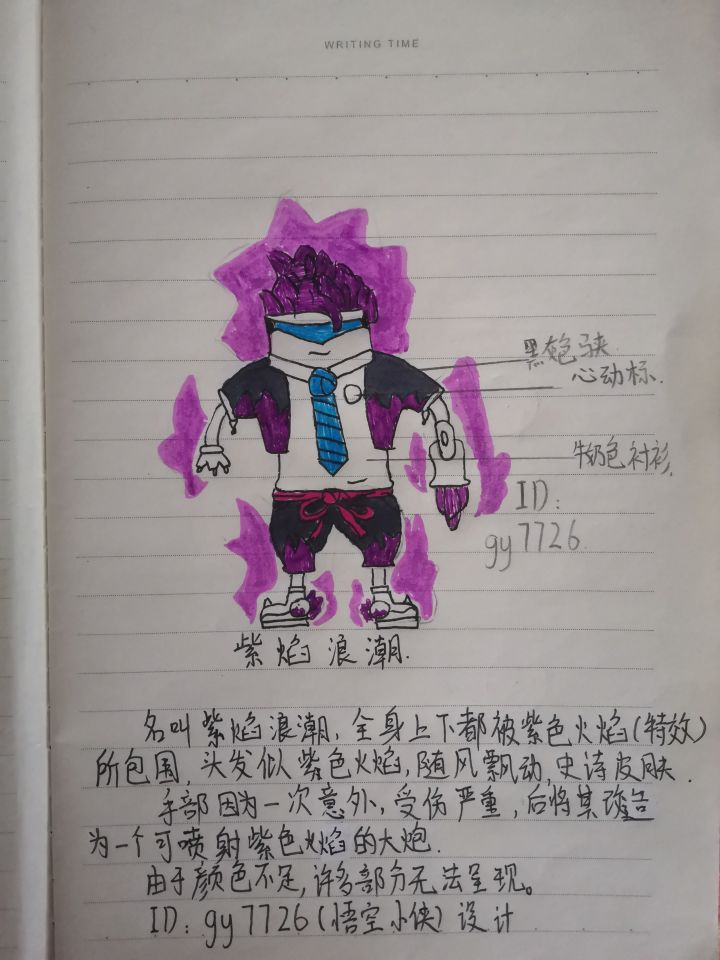 WRITING TIME
黑色马夹
心动标.
牛奶色衬衫.
ID:
gy7726
紫焰浪潮.
名叫紫焰浪潮,全身上下都被紫色火焰(特效)
所包围,头发似紫色火焰,随风飘动,史诗皮肤.
手部因为一次意外,受伤严重,后将其改造
为一个可喷射紫色火焰的大炮.
由于颜色不足,许多部分无法呈现。
ID:gy7726(悟空小侠)设计